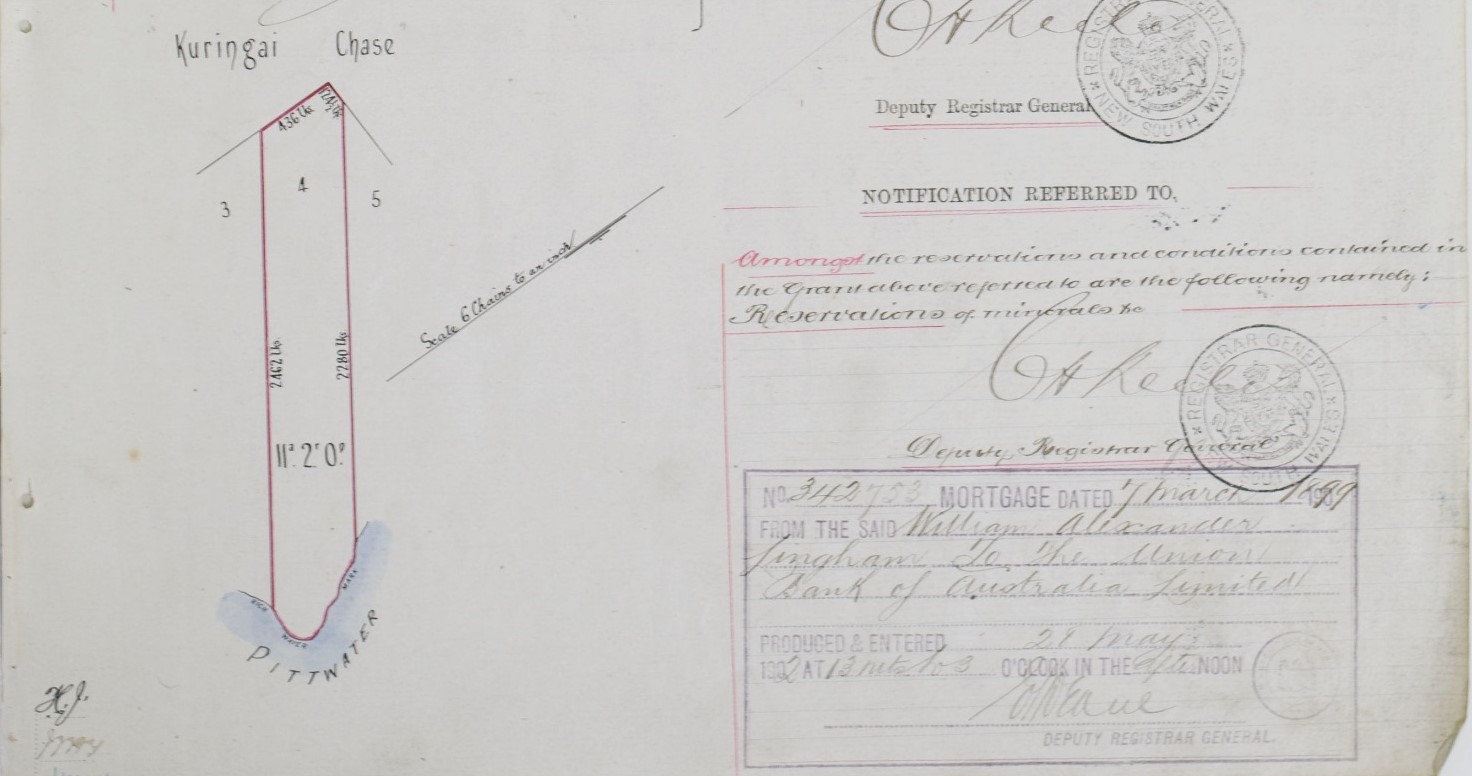 Kuringai Chase
436 lks
124½ lks
3
4
5
2462 lks.
2280 lks
11ᵃ 2ʳ 0ᵖ
Scale 6 Chains to an inch
HIGH WATER MARK
PITTWATER
H.J.
Deputy Registrar General
REGISTRAR GENERAL
NEW SOUTH WALES
NOTIFICATION REFERRED TO,
Amongst the reservations and conditions contained in
the Grant above referred to are the following namely;
Reservations of minerals &c
Deputy Registrar General
REGISTRAR GENERAL
NEW SOUTH WALES
No. 342753 MORTGAGE DATED 7 March 1899
FROM THE SAID William Alexander
Lingham To The Union
Bank of Australia Limited
PRODUCED & ENTERED 28 May
1902 AT 13 mts to 3 O'CLOCK IN THE after NOON
DEPUTY REGISTRAR GENERAL.